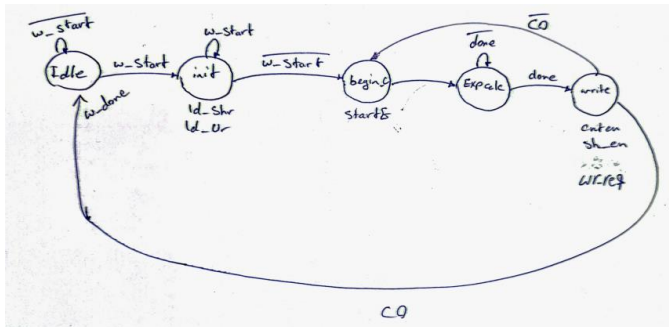 w_start
Idle
w_start
w_start
init
ld_Shr
ld_Ur
w_start
begin_C
start&
done
Exp calc
done
C0
write
cnten
sh_en
wr_req
w_done
C0